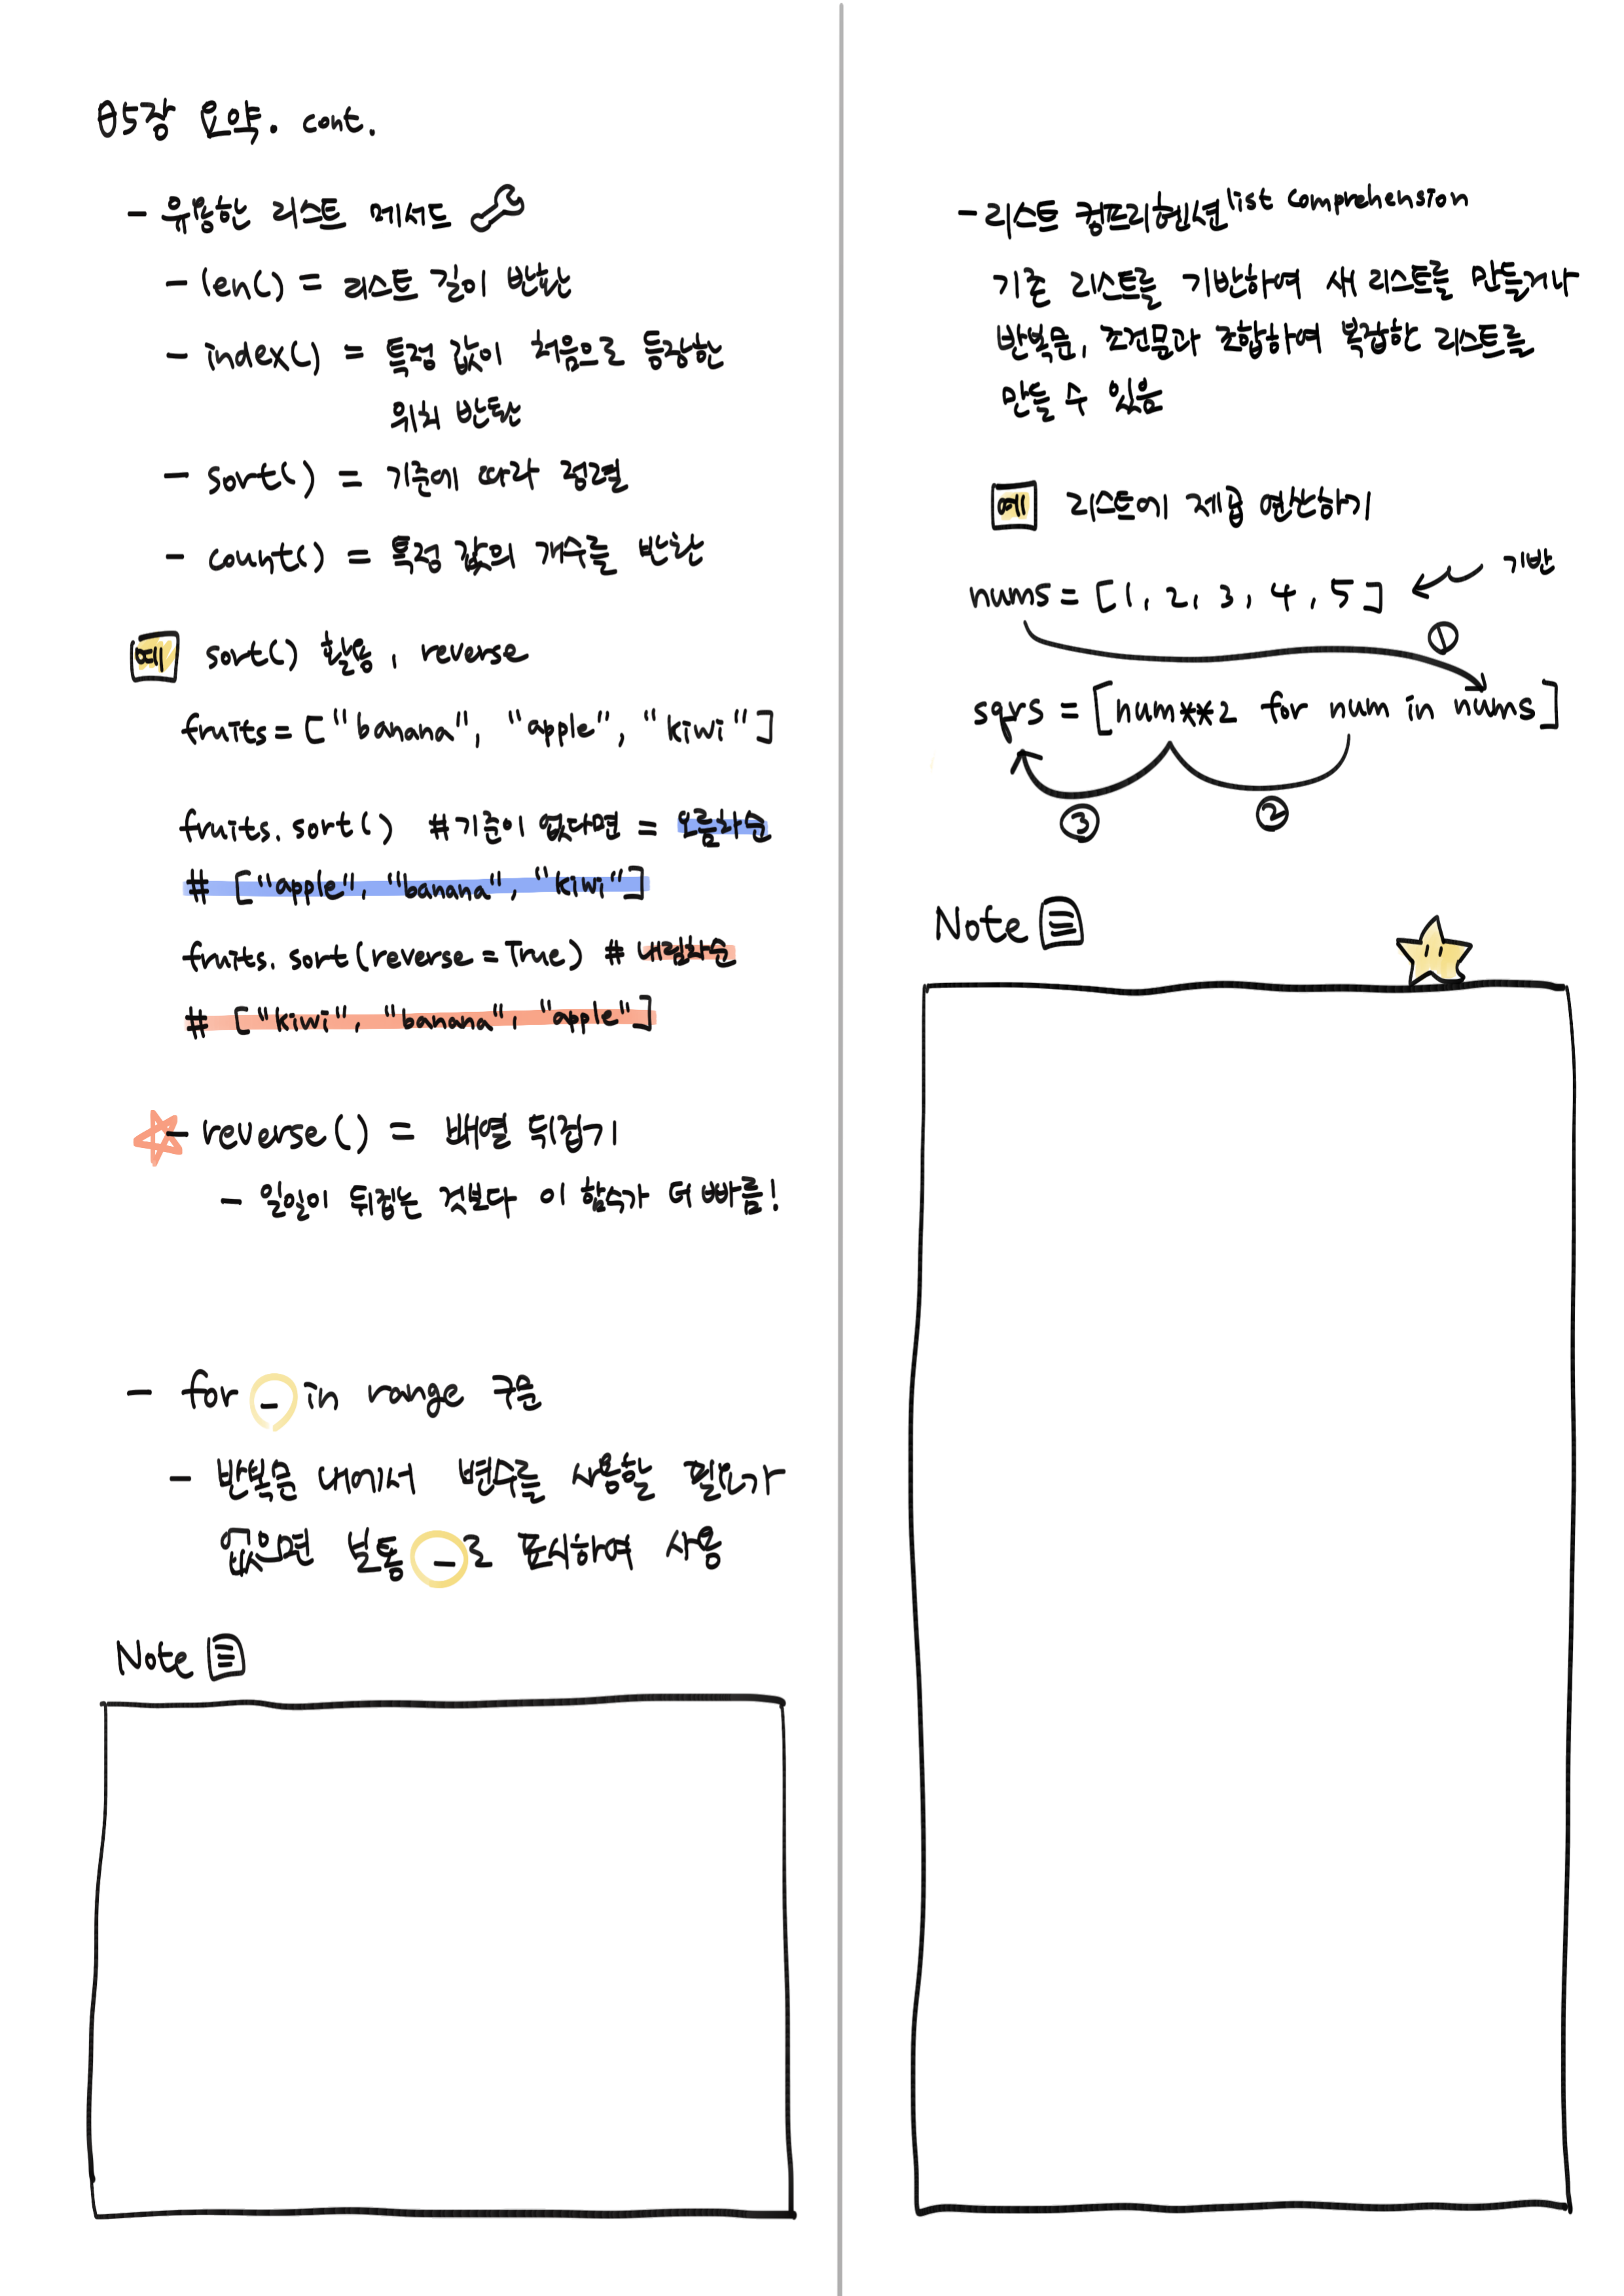 05장 요약. cont.
- 유용한 리스트 메서드
- len() = 리스트 길이 반환
- index() = 특정 값이 처음으로 등장한
위치 반환
- sort() = 기준에 따라 정렬
- count() = 특정 값의 개수를 반환
예 sort() 활용, reverse
fruits = ["banana", "apple", "kiwi"]
fruits.sort() #기준이 없다면 = 오름차순
# ["apple", "banana", "kiwi"]
fruits.sort(reverse=True) # 내림차순
# ["kiwi", "banana", "apple"]
- reverse() = 배열 뒤집기
- 일일이 뒤집는 것보다 이 함수가 더 빠름!
- for _ in range 구문
- 반복문 내에서 변수를 사용할 필요가
없으면 보통 _로 표시하여 사용
Note
- 리스트 컴프리헨션 list comprehension
기존 리스트를 기반하여 새 리스트를 만들거나
반복문, 조건문과 조합하여 복잡한 리스트를
만들 수 있음
예 리스트에 제곱 연산하기
nums = [1, 2, 3, 4, 5] 기반
①
sqrs = [num**2 for num in nums]
③ ②
Note